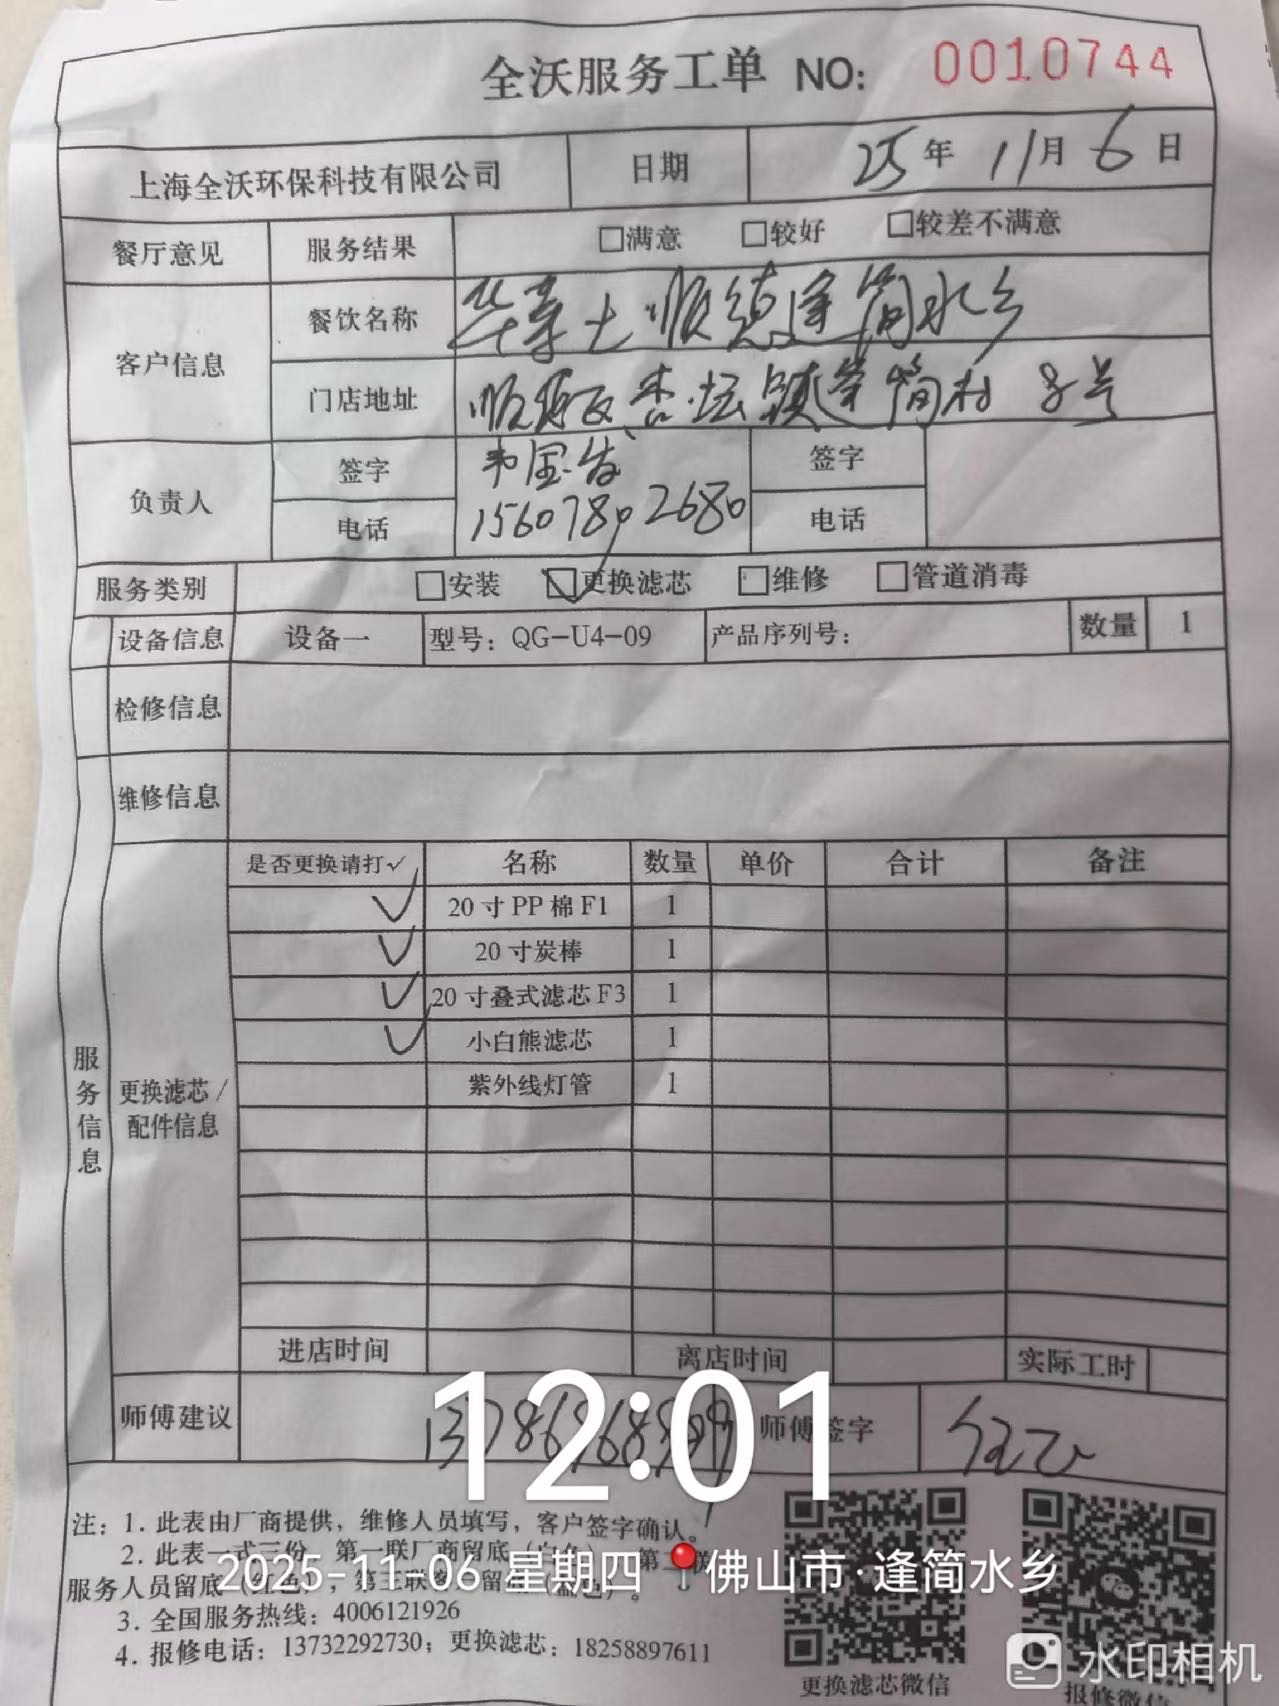 全沃服务工单 NO: 0010744
上海全沃环保科技有限公司 日期 25年 11月 6日
餐厅意见 服务结果 □满意 □较好 □较差不满意
客户信息 餐饮名称 华莱士顺德逢简水乡
门店地址 顺德区杏坛镇逢简村 8号
负责人 签字 韦国发 签字
电话 15607802680 电话
服务类别 □安装 ☑更换滤芯 □维修 □管道消毒
设备信息 设备一 型号：QG-U4-09 产品序列号： 数量 1
检修信息
维修信息
服务信息
更换滤芯/
配件信息
是否更换请打✓ 名称 数量 单价 合计 备注
✓ 20寸PP棉F1 1
✓ 20寸炭棒 1
✓ 20寸叠式滤芯F3 1
✓ 小白熊滤芯 1
紫外线灯管 1
进店时间 离店时间 实际工时
师傅建议 师傅签字
12:01
注：1. 此表由厂商提供，维修人员填写，客户签字确认。
2. 此表一式三份，第一联厂商留底
服务人员留底
2025-11-06 星期四 佛山市·逢简水乡
3. 全国服务热线：4006121926
4. 报修电话：13732292730；更换滤芯：18258897611
更换滤芯微信
报修微信
水印相机